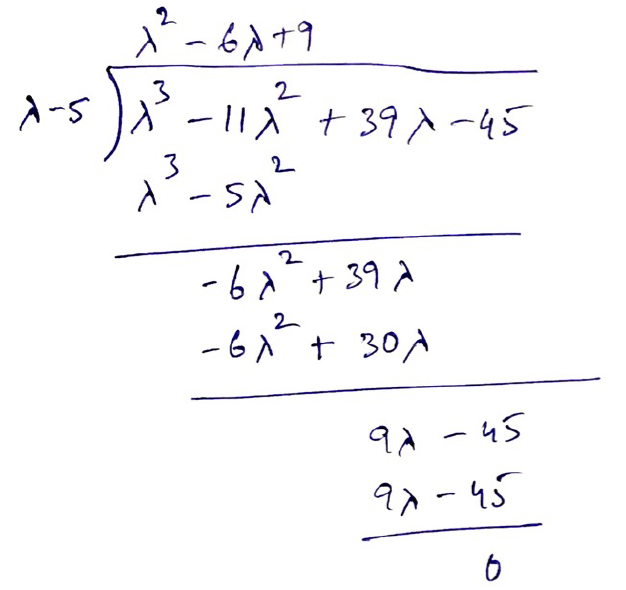 λ² - 6λ + 9
λ-5 ) λ³ - 11λ² + 39λ - 45
λ³ - 5λ²
-6λ² + 39λ
-6λ² + 30λ
9λ - 45
9λ - 45
0